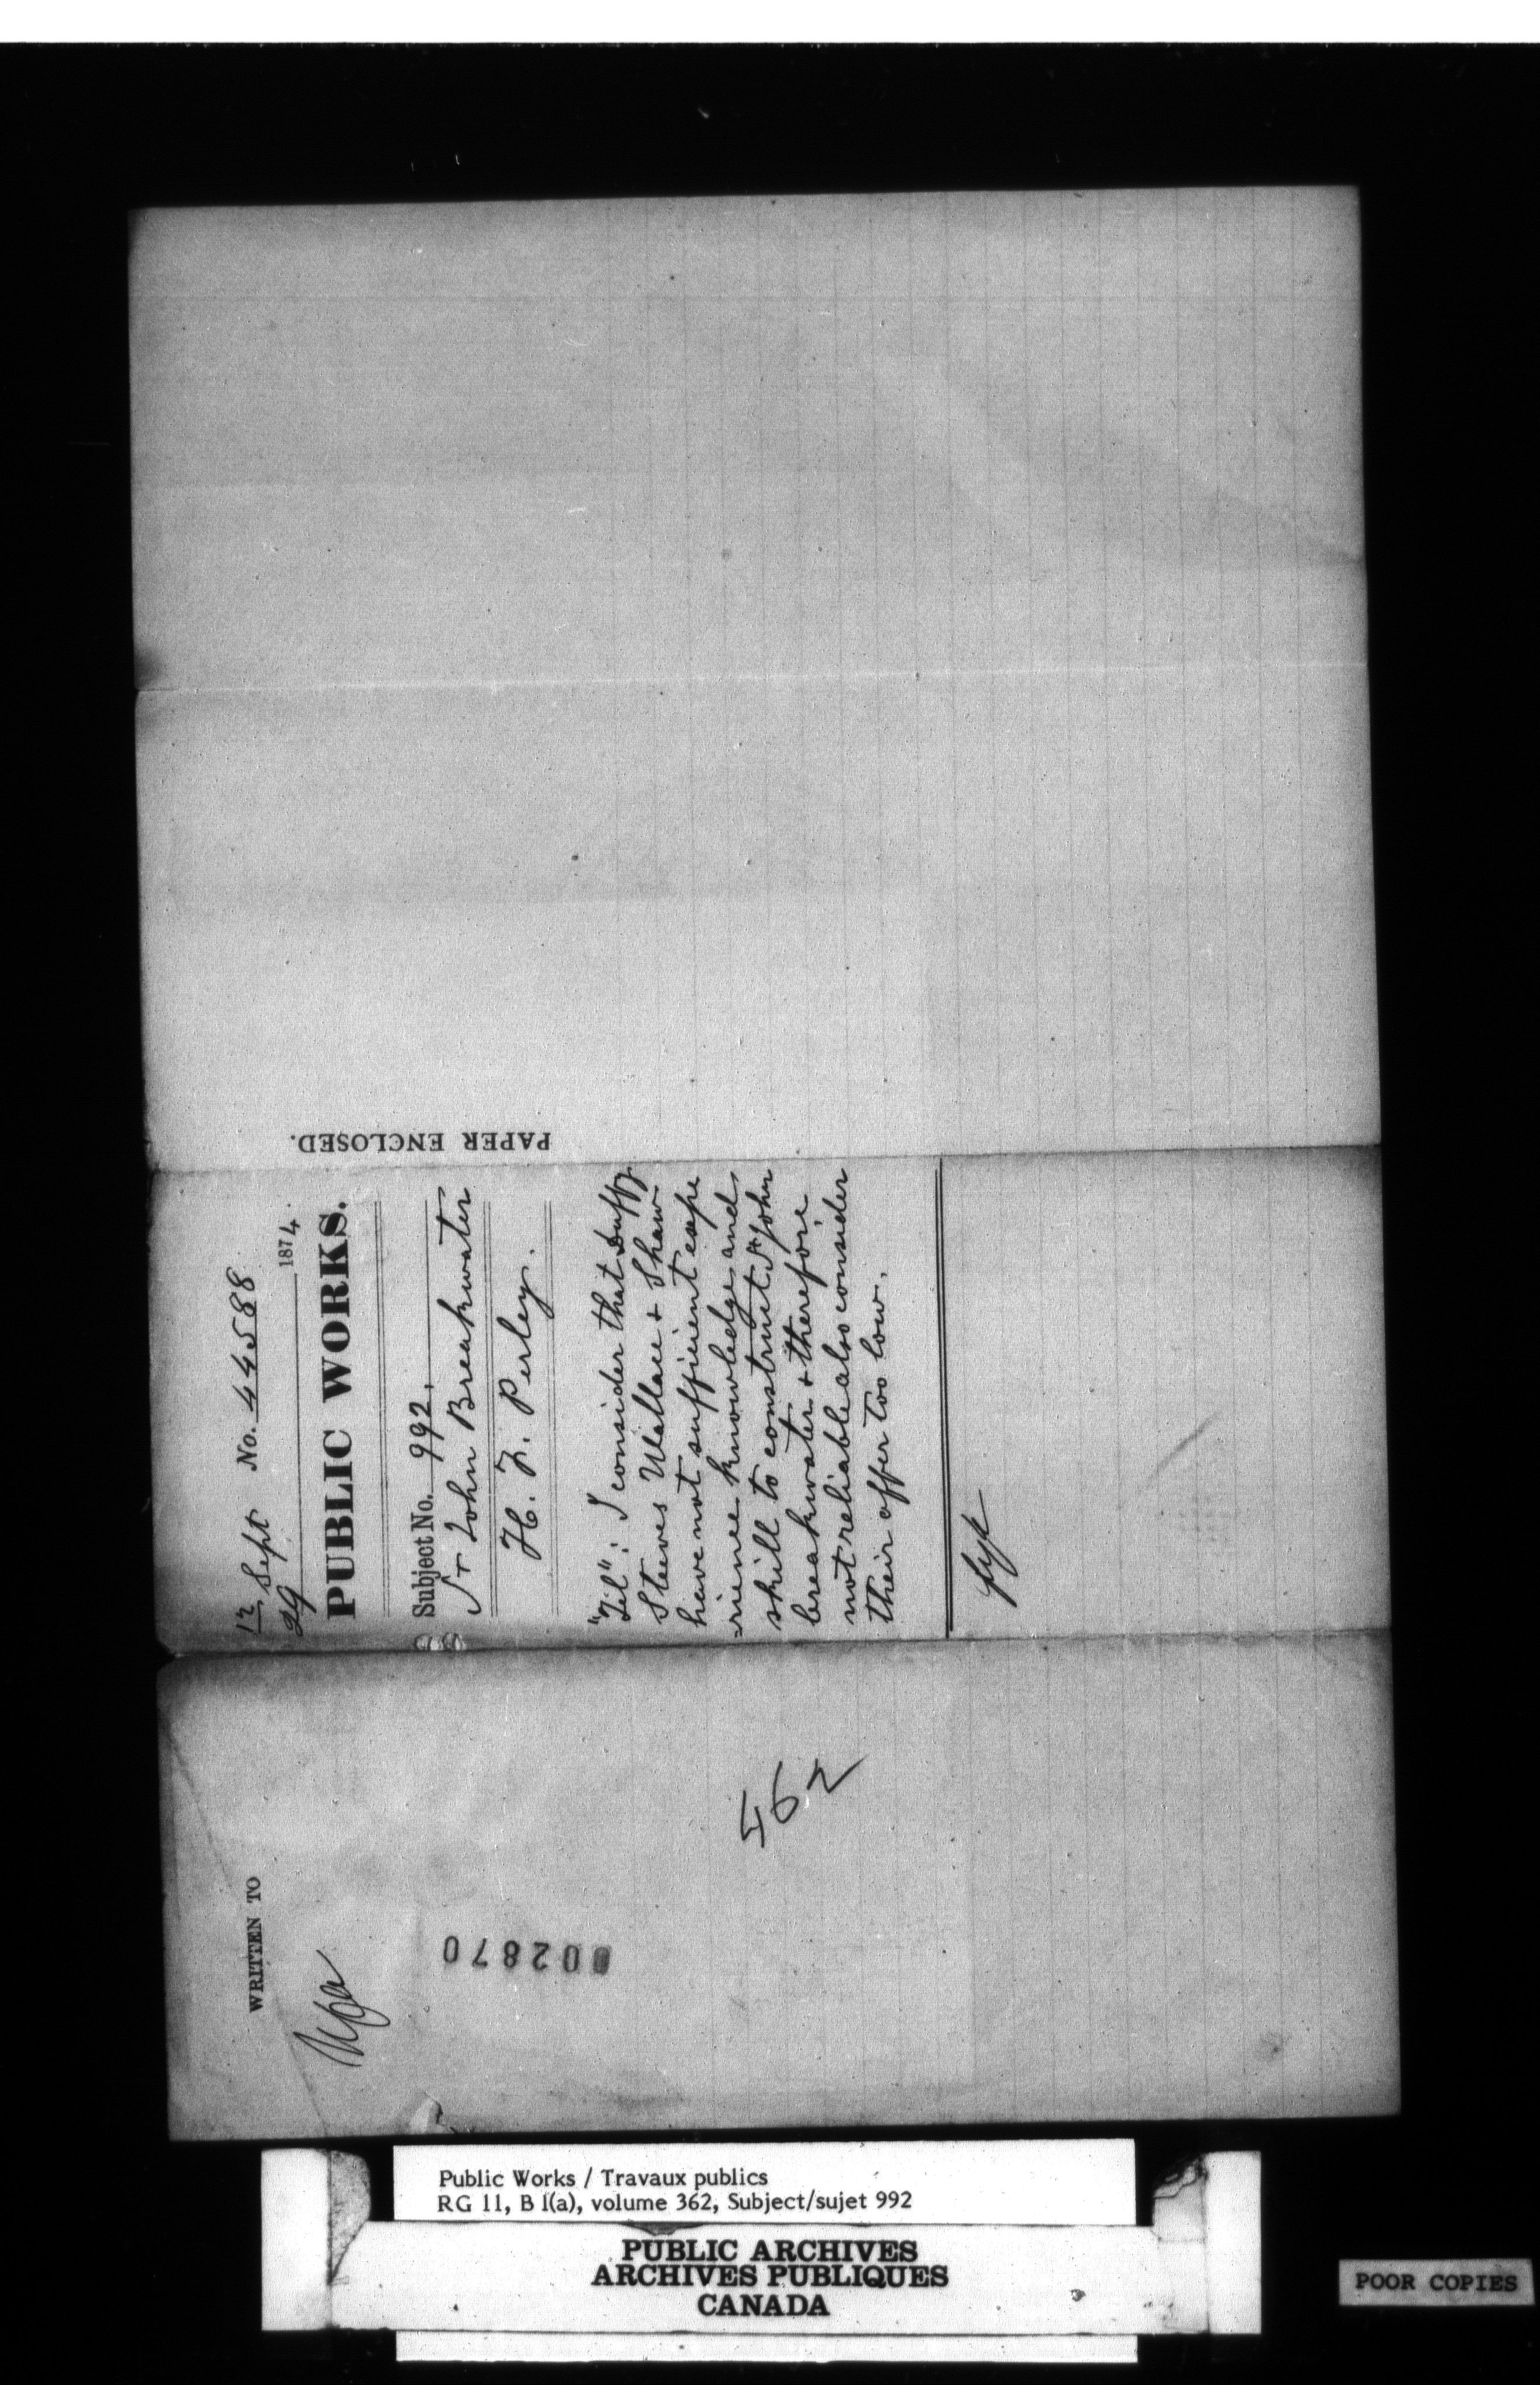 12 Sept No. 44588
29 1874.
PUBLIC WORKS.
Subject No. 992,
St John Breakwater
H. F. Perley.
"Tel": I consider that Duffy
Steeves Wallace & Shaw
have not sufficient expe
=rience knowledge and
skill to construct St John
breakwater & therefore
not reliable also consider
their offer too low.
fyl
PAPER ENCLOSED.
WRITTEN TO
002870
462
Public Works / Travaux publics
RG 11, B 1(a), volume 362, Subject/sujet 992
PUBLIC ARCHIVES
ARCHIVES PUBLIQUES
CANADA
POOR COPIES